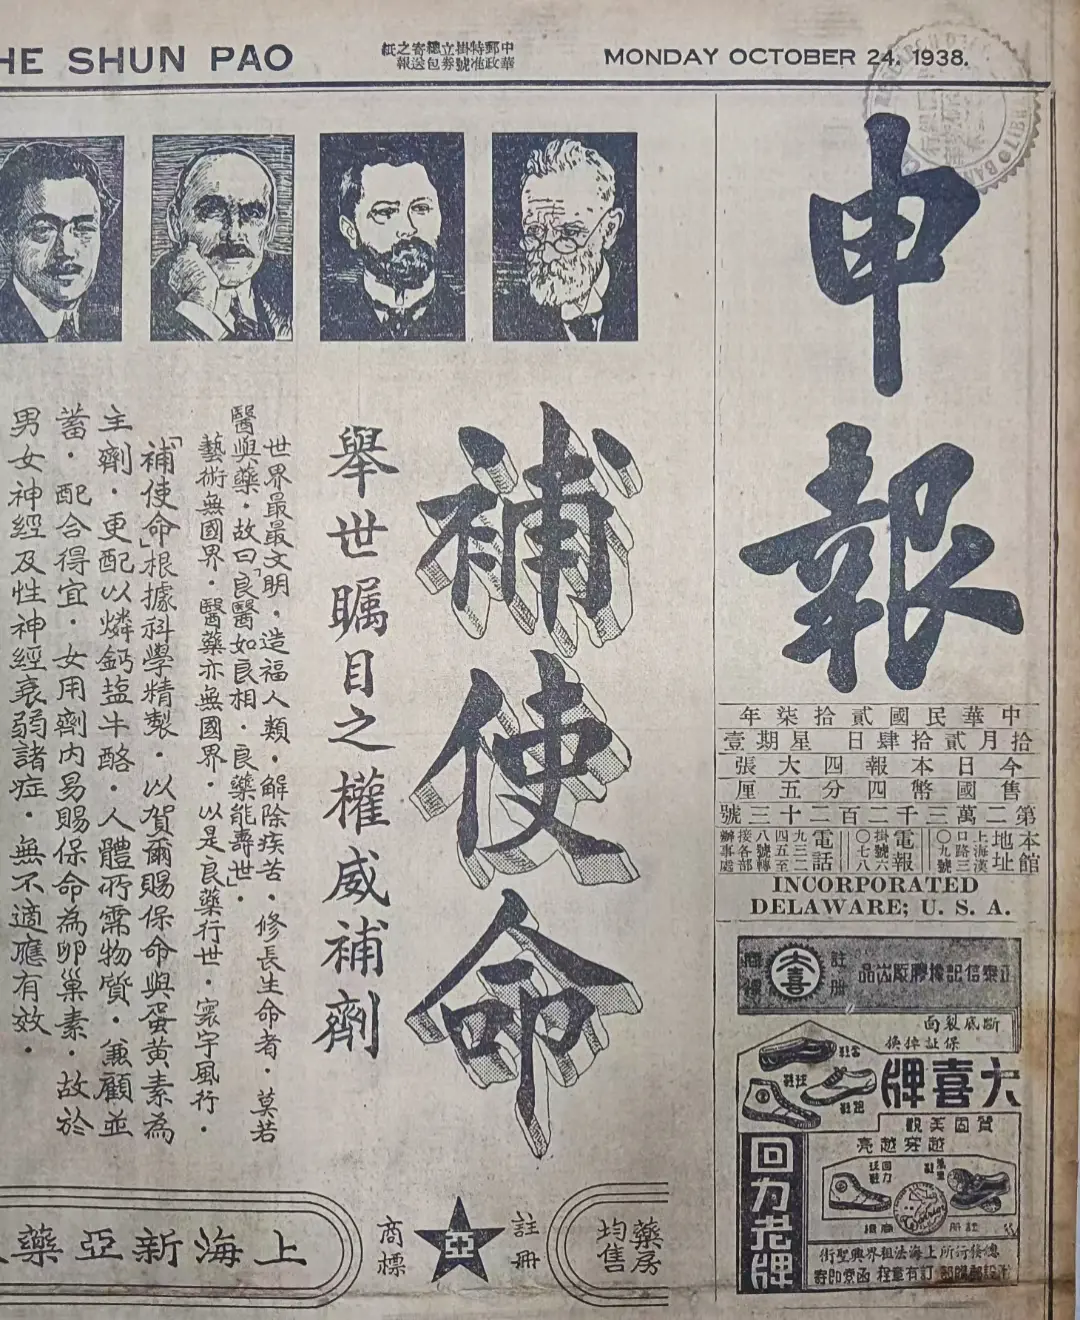 HE SHUN PAO
中華郵政特准掛號立券總包寄送之報紙
MONDAY OCTOBER 24, 1938.
申報
中華民國貳拾柒年
拾月貳拾肆日 星期壹
今日本報四大張
售國幣四分五厘
第二萬三千二百二十三號
本館地址
上海漢口路三〇九號
電報
掛號〇七六八
電話
九三二四五至八號轉接各部辦事處
INCORPORATED
DELAWARE; U. S. A.
補使命
舉世瞩目之權威補劑
世界最最文明，造福人類，解除疾苦，修長生命者，莫若
醫與藥，故曰「良醫如良相，良藥能壽世」。
藝術無國界，醫藥亦無國界，以是良藥行世，寰宇風行，
「補使命」根據科學精製，以賀爾賜保命與蛋黃素為
主劑，更配以燐鈣塩牛酪，人體所需物質，兼顧並
蓄，配合得宜，女用劑內易賜保命為卵巢素，故於
男女神經及性神經衰弱諸症，無不適應有效。
藥房均售
註冊
亞
商標
上海新亞藥
正泰信記橡膠廠出品
註冊
大喜
商標
斷底裂面
保証掉換
大喜牌
質固美觀
越穿越亮
回力老牌
回力球鞋
註冊
商標
總發行所上海法租界興聖街
訂有章程函索即寄